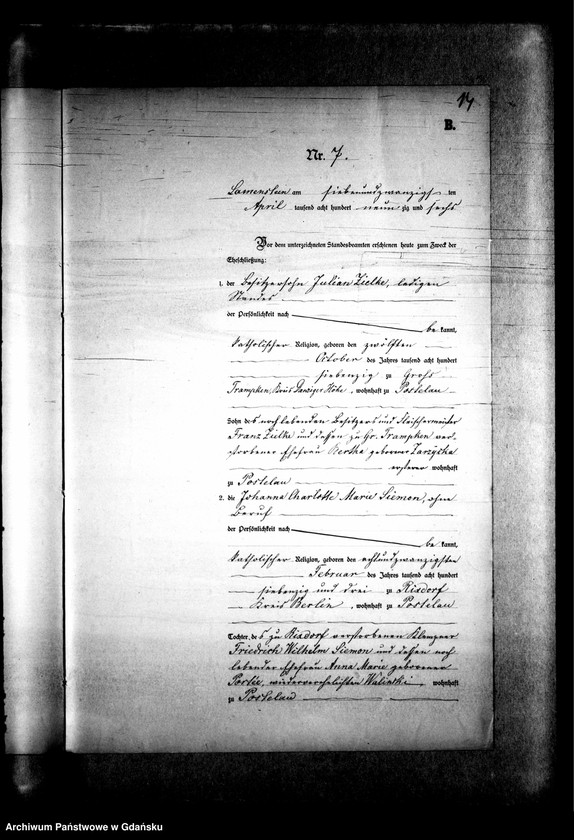 14
B.
Nr. 7.
Lamenstein am siebenundzwanzigsten
April tausend acht hundert neunzig und sechs
Vor dem unterzeichneten Standesbeamten erschienen heute zum Zweck der
Eheschließung:
1. der Besitzersohn Julian Zielke, ledigen
Standes
der Persönlichkeit nach
be kannt,
katholischer Religion, geboren den zwölften
October des Jahres tausend acht hundert
siebenzig zu Groß
Trampken, Kreis Danziger Höhe, wohnhaft zu Postelau
Sohn des noch lebenden Besitzers und Fleischermeister
Franz Zielke und dessen zu Gr. Trampken ver-
storbener Ehefrau Bertha geborener
ersterer wohnhaft
zu Postelau
2. die Johanna Charlotte Marie Siemon, ohne
Beruf
der Persönlichkeit nach
be kannt,
katholischer Religion, geboren den achtundzwanzigsten
Februar des Jahres tausend acht hundert
siebenzig und drei zu Rixdorf
Kreis Berlin, wohnhaft zu Postelau
Tochter des zu Rixdorf verstorbenen Klempner
Friedrich Wilhelm Siemon und dessen noch
lebender Ehefrau Anna Marie geborener
wiederverehelichten Walinski, wohnhaft
zu Postelau
Archiwum Państwowe w Gdańsku